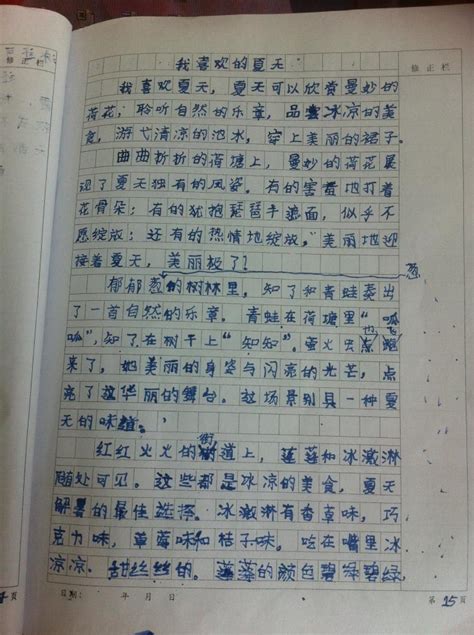 修正栏
我喜欢的夏天
我喜欢夏天，夏天可以欣赏曼妙的
荷花；聆听自然的乐章，品尝冰凉的美
食，游弋清凉的池水，穿上美丽的裙子。
曲曲折折的荷塘上，曼妙的荷花展
现了夏天独有的风姿。有的害羞地打着
花骨朵；有的犹抱琵琶半遮面，似乎不
愿绽放；还有的热情地绽放，美丽地迎
接着夏天，美丽极了！
郁郁葱葱的树林里，知了和青蛙奏出
了一首自然的乐章。青蛙在荷塘里“呱
呱”，知了在树干上“知知”。萤火虫也跑
来了，她美丽的身姿与闪亮的光芒，点
亮了这华丽的舞台。这场景别具一种夏
天的味道。
红红火火的街道上，莲蓬和冰激淋
随处可见。这些都是冰凉的美食，夏天
解暑的最佳选择。冰激淋有香草味，巧
克力味，草莓味和桔子味。吃在嘴里冰
凉凉，甜丝丝的。莲蓬的颜色碧绿碧绿，
日期： 年 月 日 第 15 页